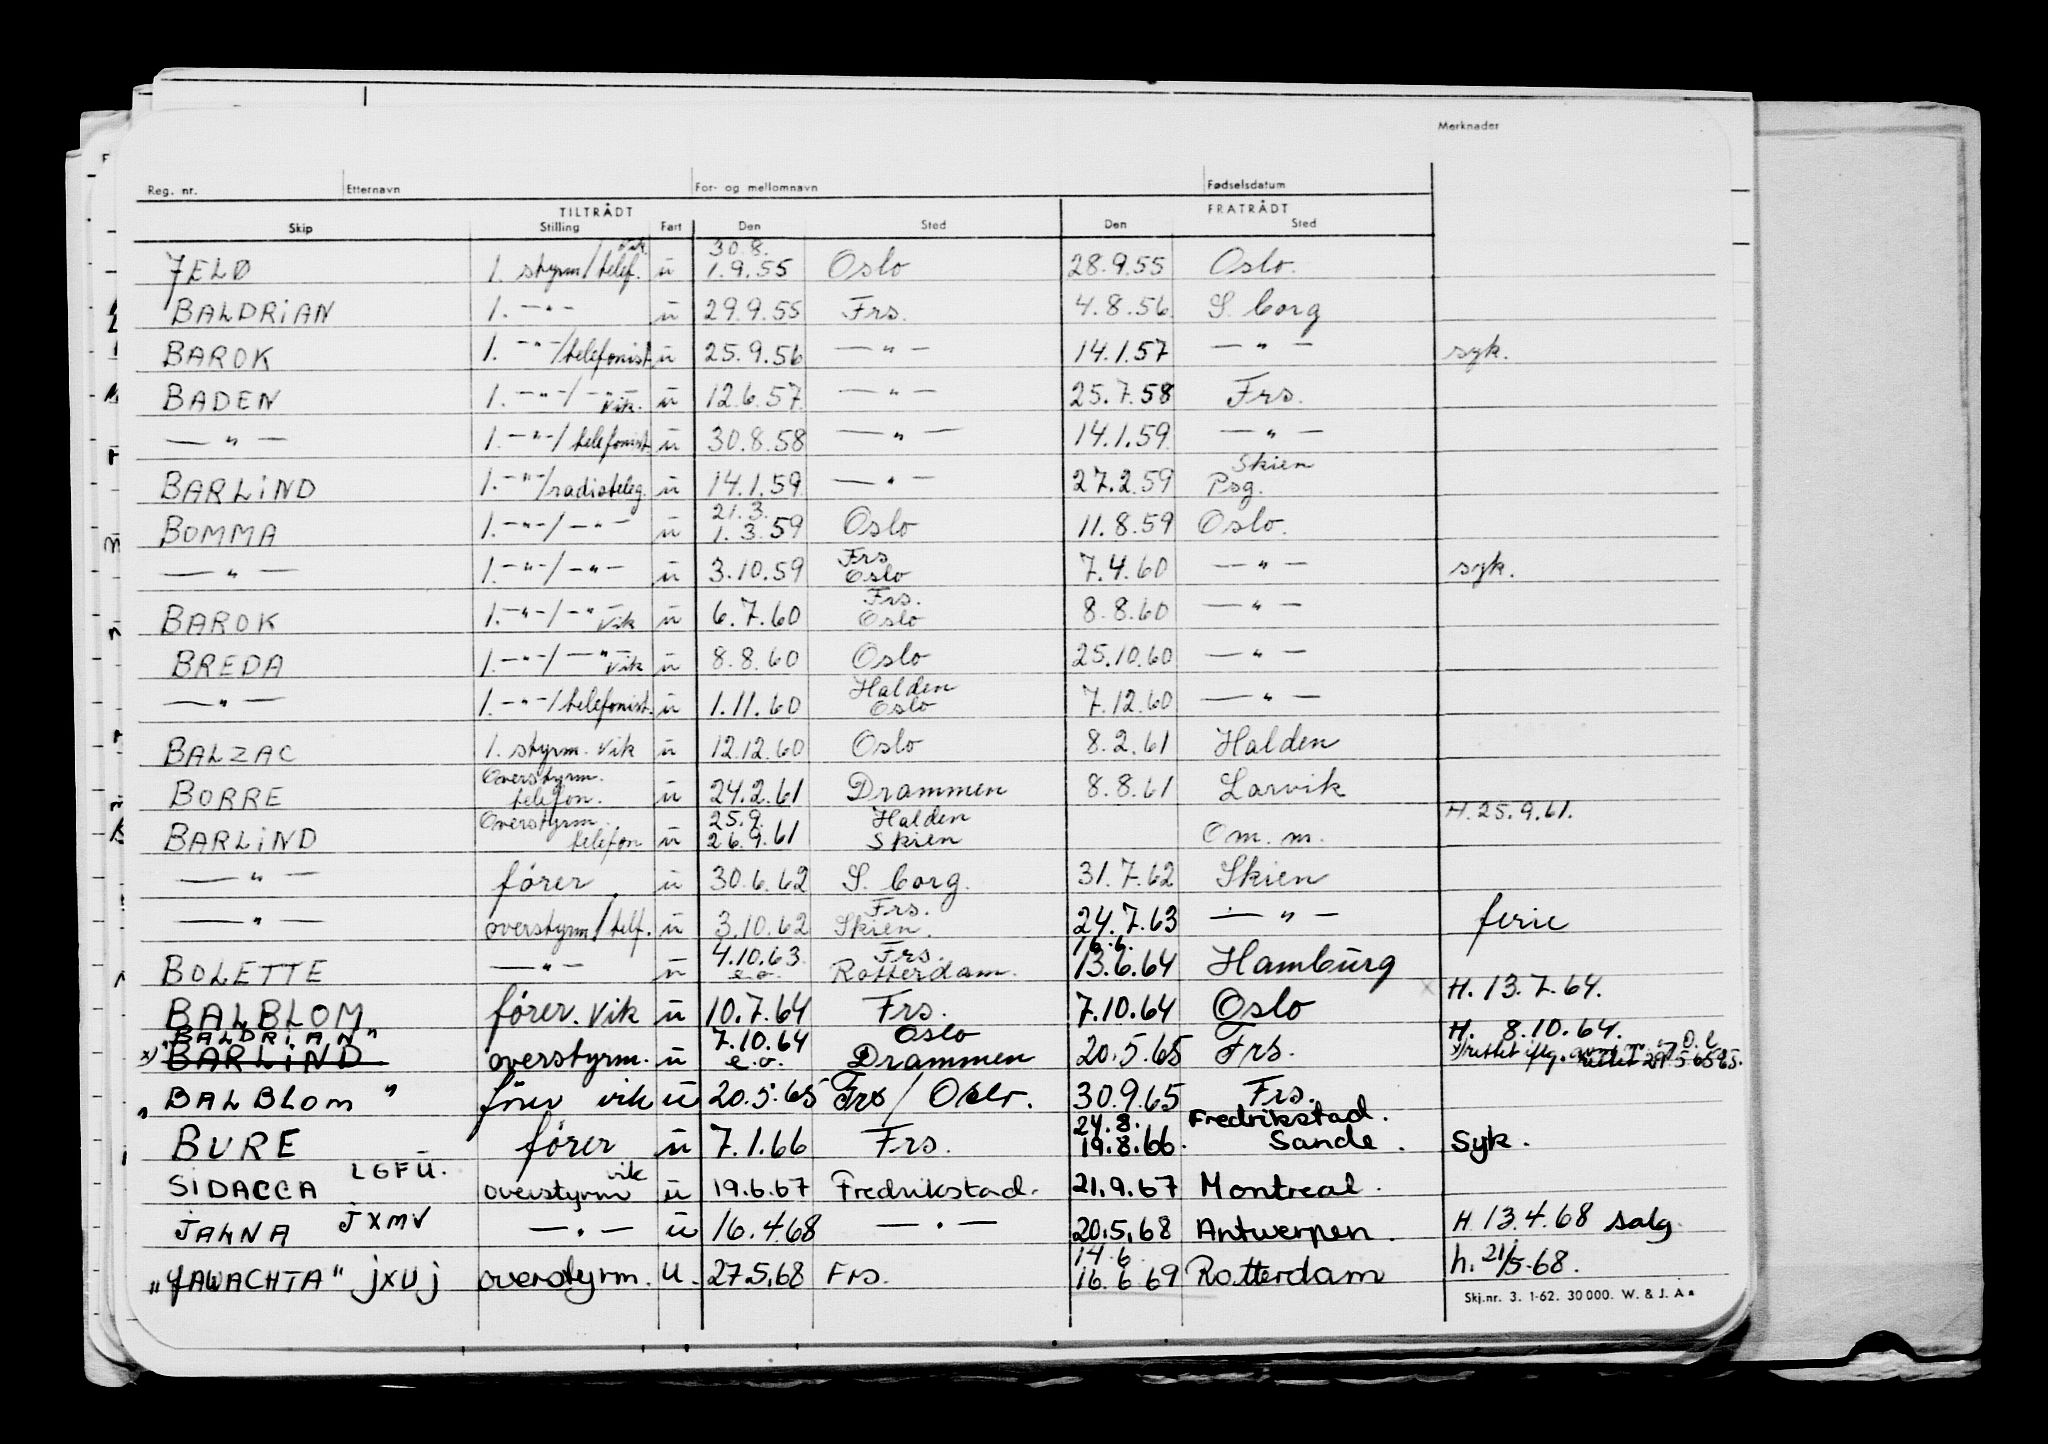 Merknader
Reg. nr. Etternavn For- og mellomnavn Fødselsdatum
TILTRÅDT FRATRÅDT
Skip Stilling Fart Den Sted Den Sted
vik.
30.8.
JELØ 1. styrm/telef. u 1.9.55 Oslo 28.9.55 Oslo.
BALDRIAN 1. —"— u 29.9.55 Frs. 4.8.56 S. borg
BAROK 1. —"—/telefonist u 25.9.56 —"— 14.1.57 —"— syk.
BADEN 1. —"—/—"— vik. u 12.6.57 —"— 25.7.58 Frs.
—"— 1. —"—/telefonist u 30.8.58 —"— 14.1.59 —"—
Skien
BARLIND 1. —"—/radioteleg. u 14.1.59 —"— 27.2.59 Psg.
21.3.
BOMMA 1. —"—/—"— u 1.3.59 Oslo 11.8.59 Oslo.
Frs
—"— 1. —"—/—"— u 3.10.59 Oslo 7.4.60 —"— syk.
Frs.
BAROK 1. —"—/—"— vik u 6.7.60 Oslo 8.8.60 —"—
BREDA 1. —"—/—"— vik u 8.8.60 Oslo 25.10.60 —"—
Halden
—"— 1. —"—/telefonist. u 1.11.60 Oslo 7.12.60 —"—
BALZAC 1. styrm. vik u 12.12.60 Oslo 8.2.61 Halden
Overstyrm.
BORRE telefon. u 24.2.61 Drammen 8.8.61 Larvik
Overstyrm. 25.9. Halden H. 25.9.61.
BARLIND telefon u 26.9.61 Skien Om. m.
—"— fører u 30.6.62 S. borg. 31.7.62 Skien
Frs.
—"— overstyrm/telf. u 3.10.62 Skien. 24.7.63 —"— ferie
4.10.63 Frs. 16.6.
BOLETTE —"— u e.o. Rotterdam. 13.6.64 Hamburg
H. 13.7.64.
BALBLOM fører. vik u 10.7.64 Frs. 7.10.64 Oslo
"BALDRIAN" 7.10.64 Oslo H. 8.10.64.
x) BARLIND overstyrm. u e.o. Drammen 20.5.65 Frs. x) rettet iflg.
"BALBLOM" fører vik u 20.5.65 Frs/Oslo. 30.9.65 Frs.
24.8. Fredrikstad.
BURE fører u 7.1.66 Frs. 19.8.66. Sande. Syk.
SIDACCA LGFU. overstyrm vik u 19.6.67 Fredrikstad. 21.9.67 Montreal.
JALNA JXMV —"— u 16.4.68 —"— 20.5.68 Antwerpen. H. 13.4.68 salg.
14.6
"JAWACHTA" JXUJ overstyrm. u. 27.5.68 Frs. 16.6.69 Rotterdam h. 21/5-68.
Skj.nr. 3. 1-62. 30 000. W. & J. A s